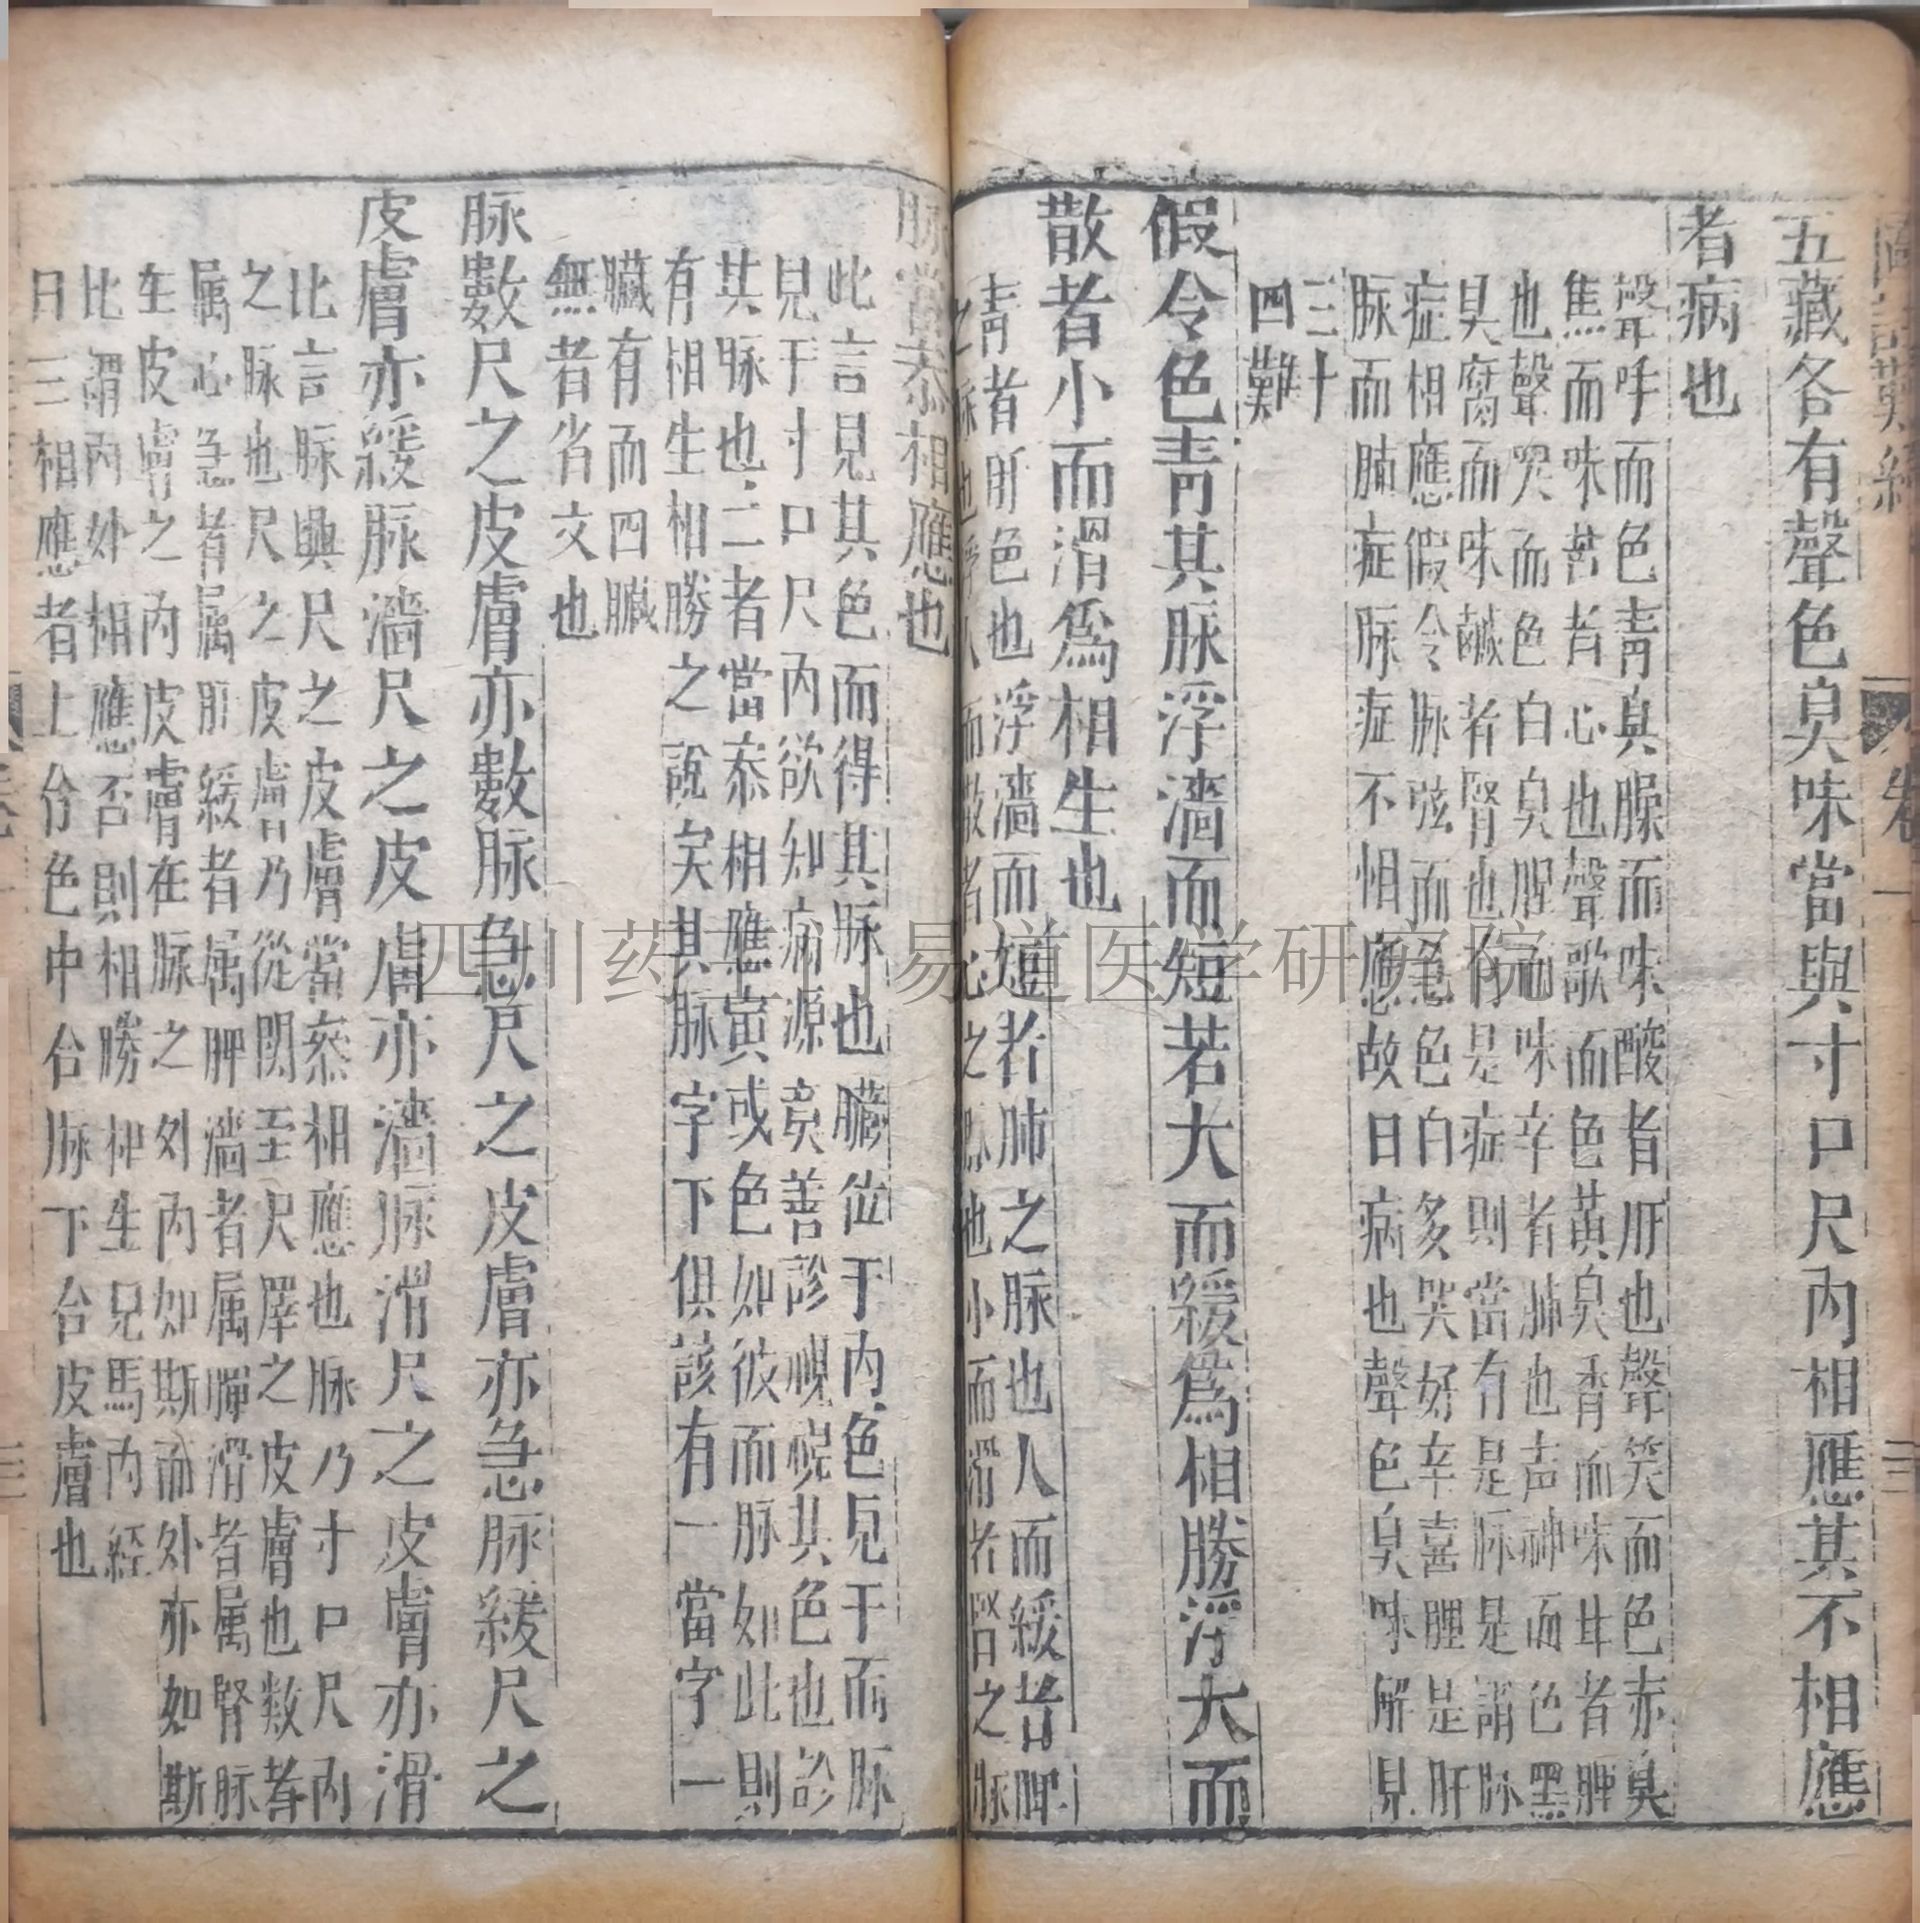 五藏各有聲色臭味當與寸口尺內相應其不相應
者病也
聲呼而色青臭臊而味酸者肝也聲笑而色赤臭
焦而味苦者心也聲歌而色黃臭香而味甘者脾
也聲哭而色白臭腥而味辛者肺也声呻而色黑
臭腐而味鹹者腎也有是症則當有是脉是謂脉
症相應假令脉弦而急色白多哭好辛喜腥是肝
脉而肺症脉症不相應故曰病也聲色臭味解見
三十
四難
假令色青其脉浮濇而短若大而緩爲相勝浮大而
散者小而滑爲相生也
青者肝色也浮濇而短者肺之脉也大而緩者脾
之脉也浮大而散者心之脉也小而滑者腎之脉
脉當叅相應也
此言見其色而得其脉也臟位于内色見于而脉
見于寸口尺内欲知病源竟善診視視其色也診
其脉也二者當叅相應寅或色如彼而脉如此則
有相生相勝之說矣其脉字下俱該有一當字一
臟有而四臟
無者省文也
脉數尺之皮膚亦數脉急尺之皮膚亦急脉緩尺之
皮膚亦緩脉濇尺之皮膚亦濇脉滑尺之皮膚亦滑
此言脉與尺之皮膚當叅相應也脉乃寸口尺内
之脉也尺之皮膚乃從関至尺澤之皮膚也數者
属心急者属肝緩者属脾濇者属肺滑者属腎脉
在皮膚之内皮膚在脉之外内如斯而外亦如斯
此謂内外相應否則相勝相生見馬内經
曰三相應者上合色中合脉下合皮膚也
四川药王门易道医学研究院